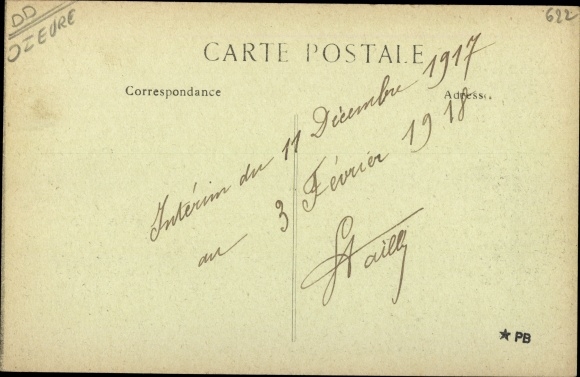 DD
622
CARTE POSTALE
Correspondance
Adresse.
Intérim du 11 Décembre 1917
au 3 Février 1918
★ PB